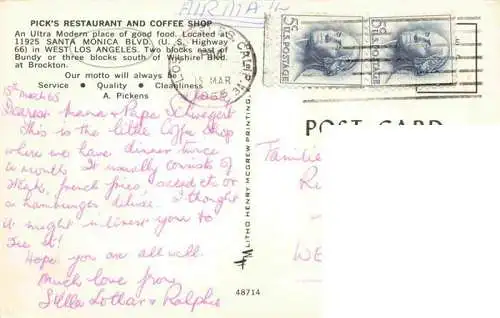 PICK'S RESTAURANT AND COFFEE SHOP
An Ultra Modern place of good food. Located at
11925 SANTA MONICA BLVD. (U. S. Highway
66) in WEST LOS ANGELES. Two blocks east of
Bundy or three blocks south of Wilshire Blvd.
at Brockton.
Our motto will always be
Service • Quality • Cleanliness
A. Pickens
AIRMAIL
15 MAR
1965
5¢ U.S. POSTAGE
5¢ U.S. POSTAGE
15th March 65
Dearest Mama + Papa Schwegert
This is the little Coffee Shop
where we have dinner twice
a month. It usually consists of
steak, french fries, salad etc or
a hamburger deluxe. I thought
it might interest you to
see it!
Hope you are all well.
Much love from
Stella Lothar + Ralphie
LITHO HENRY MCGREW PRINTING,
48714
POST CARD
Familie